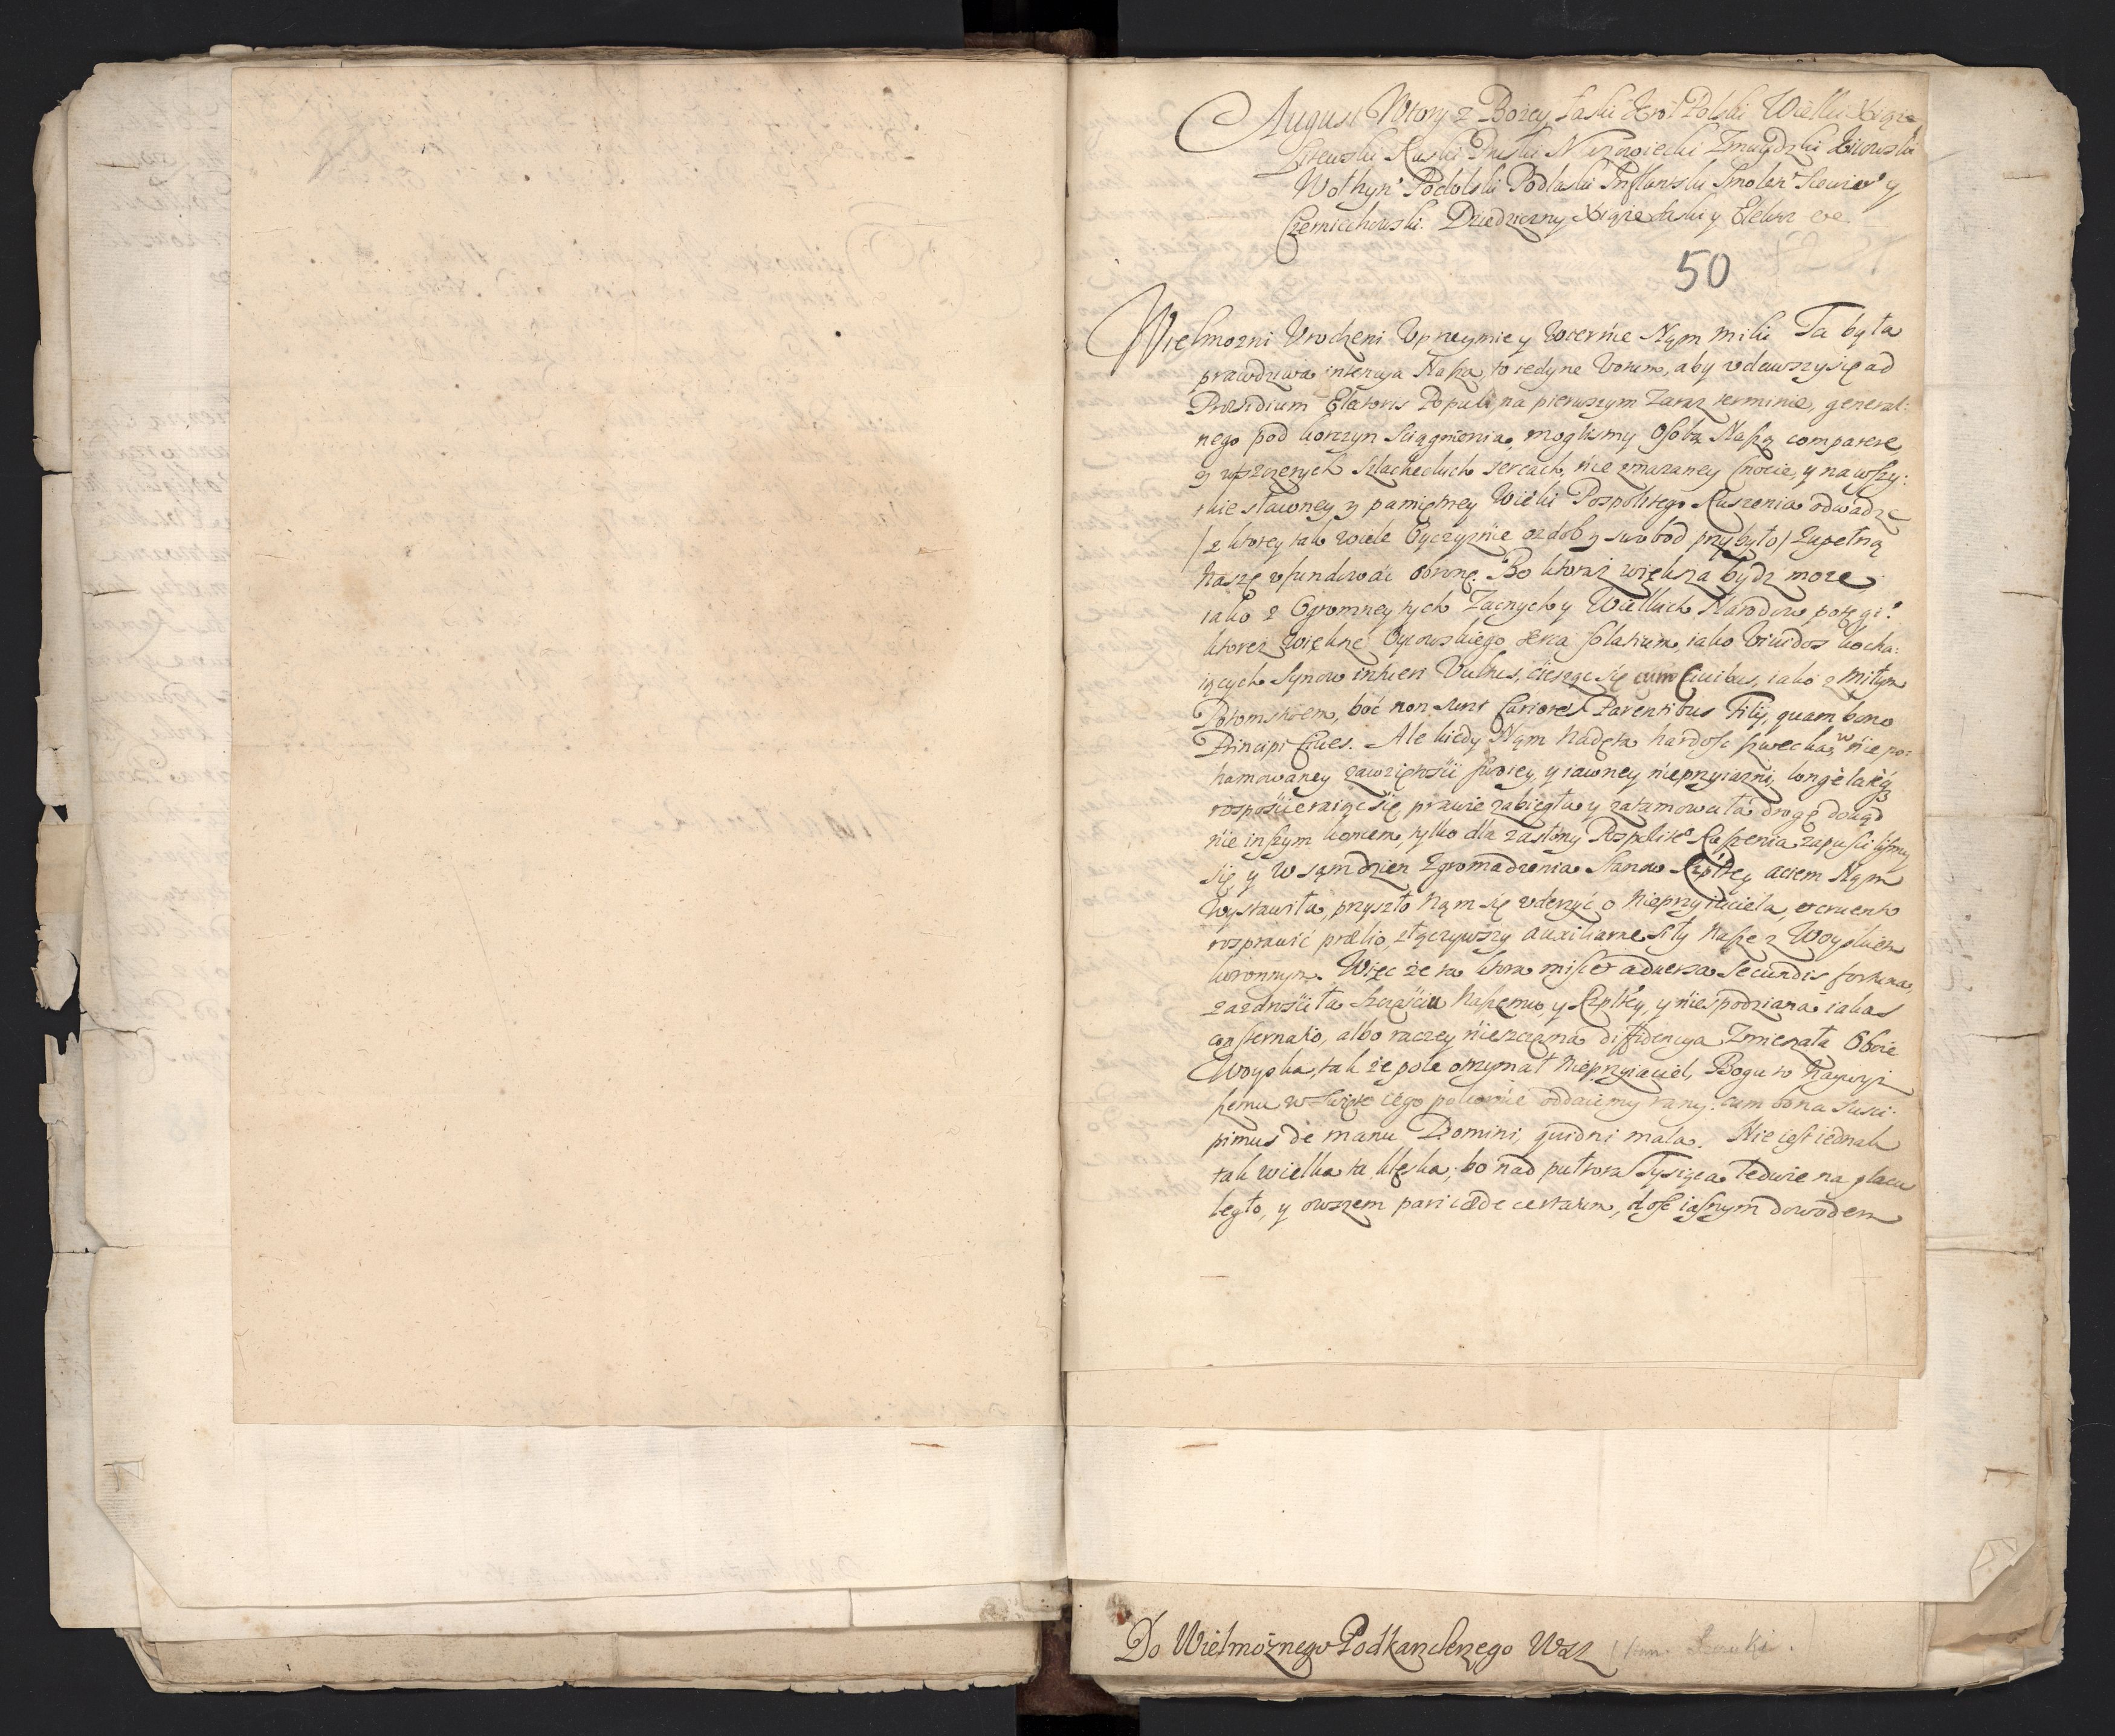 August Wtory z Bozey Łaski Krol Polski Wielki Xiąze
Litewski Ruski Pruski Mazowiecki Zmuydzki Kiiowski
Wołhyń Podolski Podlaski Inflantski Smoleń Siewier y
Czerniechowski. Dziedziczny Xiąze Saski y Elektor etc.
50
Wielmozni Urodzeni Uprzeymie y Wiernie Nąm mili Ta była
prawdziwa intencya Nasza, to iedyne Votum, aby udawszy się ad
Præsidium Electoris Populi, na pierwszym Zaraz terminie, general:
nego pod korczyn sciągnienia, moglismy Osobą Naszą comparere
y w szczerych szlacheckich sercach, nie zmazaney cnocie, y na wszy:
tkie sławney y pamiętney Wieki Pospolitego Ruszenia odwadze
/z ktorey tak wiele Oyczyznie ozdob y swobod przybyło/ Zupełną
naszę ufundować obronę. Bo ktoraż większa bydz moze
iako z Ogromney tych Zacnych y Wielkich Narodow potęgi?
ktorez większe Oycowskiego serca solatium, iako Viuidos kocha:
iących Synow intueri Vultus, cieszyc się cum Ciuibus, iako z miłym
Potomstwem, boć non sunt Cariores Parentibus Filij, quam bono
Principi Ciues. Ale kiedy Nąm Nadęta hardosc szwecka, w nie po:
hamowaney zawziętosci swoiey, y iawney nieprzyiazni, longe lateq3
rosposcieraiąc się prawie zabiegła y zatamowała drogę dokąd
nie inszym koncem, tylko dla zasłony Pospolite° Ruszenia zapuscilismy
się, y w sąm dzien Zgromadzenia Stanow Rzpltey aciem Nąm
wystawiła, przyszło Nąm się uderzyć o Nieprzyiaciela, et cruento
rozprawić prælio, złączywszy auxiliarne siły nasze z Woyskiem
koronnym. Więc że ta ktora miscet aduersa secundis fortuna,
zazdrosciła szczęsciu Naszemu y Rzpltey, y niespodziana iakas
consternatio, albo raczey nieszczęsna diffidencya Zmieszała Oboie
Woyska, tak że pole otrzymał Nieprzyiaciel, Bogu to Naywyż
szemu w Swięte iego pokornie oddaiemy rany: cum bona susci:
pimus de manu Domini, quidni mala. Nie iest iednak
tak wielka ta klęska, bo nad puttora Tysiąca ledwie na placu
legło, y owszem pari cæde certatum, dosc iasnym dowodem
Do Wielmożnego Podkanclerzego WXL